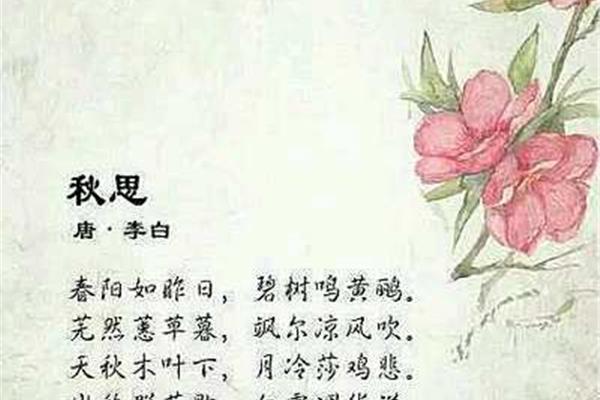 秋思
唐·李白
春阳如昨日，碧树鸣黄鹂。
芜然蕙草暮，飒尔凉风吹。
天秋木叶下，月冷莎鸡悲。